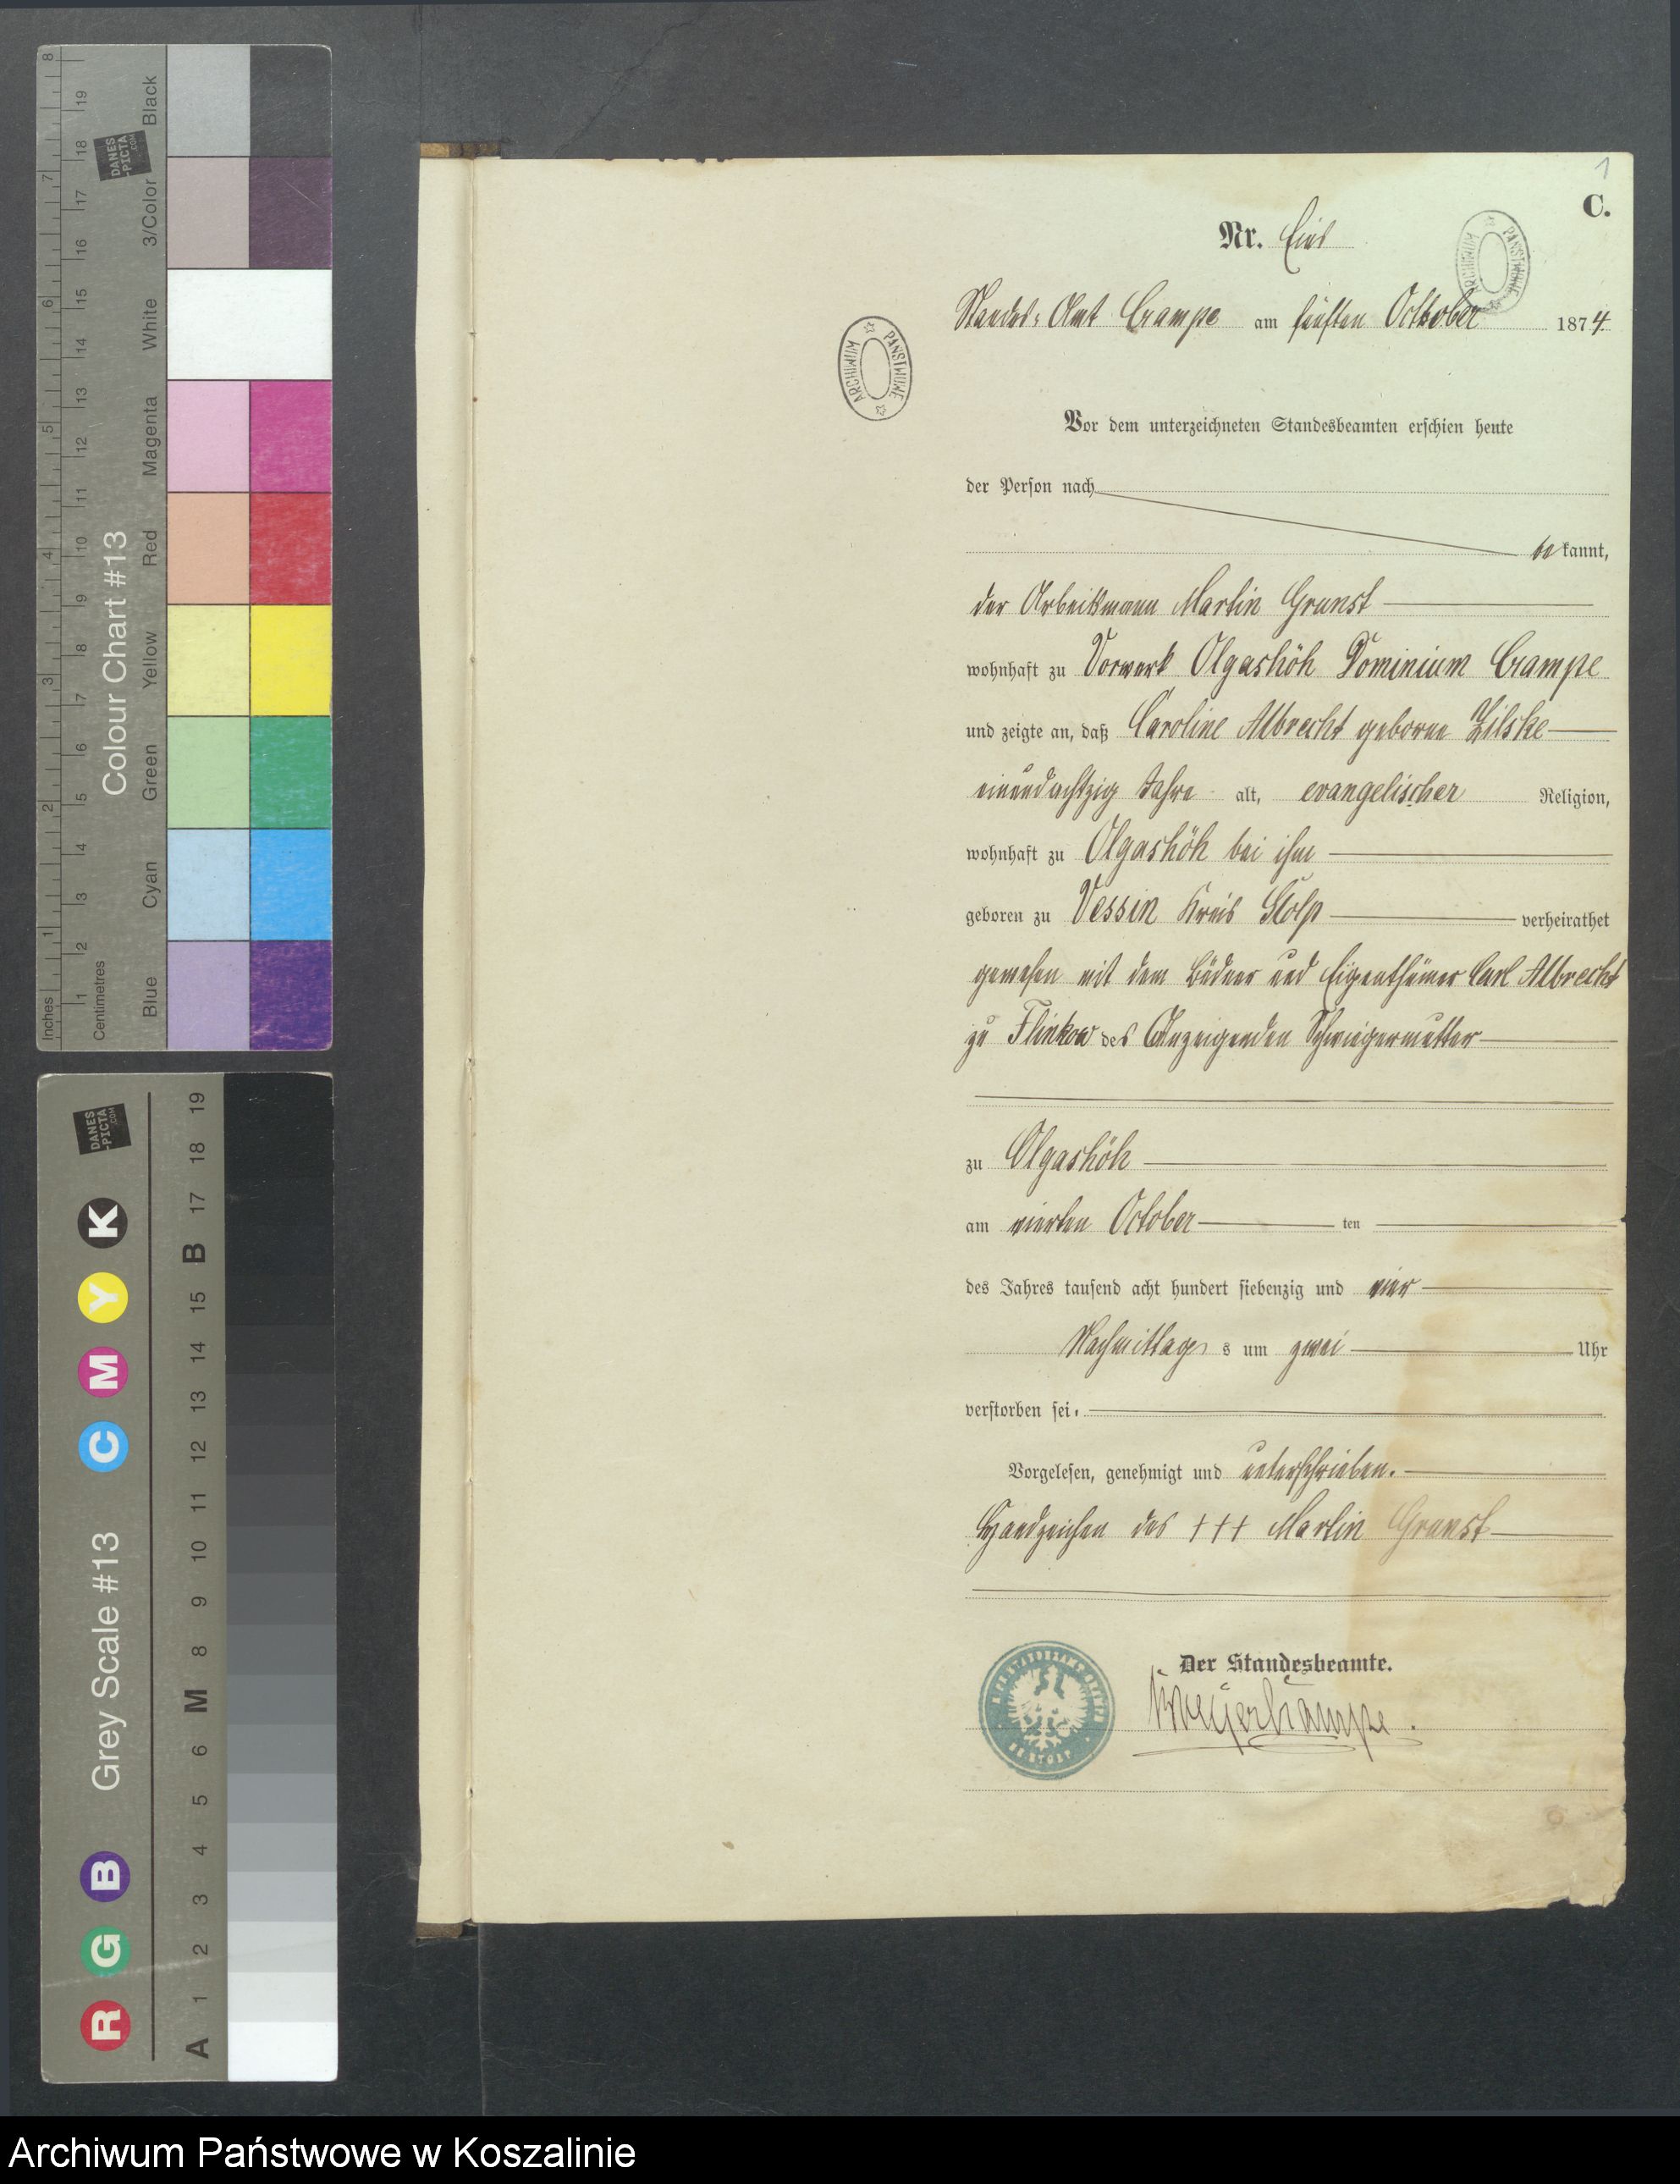 1
C.
Nr. Eins
ARCHIWUM PAŃSTWOWE
Standes-Amt Crampe am fünften October 1874
ARCHIWUM PAŃSTWOWE
Vor dem unterzeichneten Standesbeamten erschien heute
der Person nach
be kannt,
der Arbeitsmann Martin Granst
wohnhaft zu Vorwerk Olgashöh Dominium Crampe
und zeigte an, daß Caroline Albrecht geborne Zilske
einundachtzig Jahre alt, evangelischer Religion,
wohnhaft zu Olgashöh bei ihm
geboren zu Vessin Kreis Stolp verheirathet
gewesen mit dem Büdner und Eigenthümer Carl Albrecht
zu Flinkow des Anzeigenden Schwiegermutter
zu Olgashöh
am vierten October ten
des Jahres tausend acht hundert siebenzig und vier
Nachmittags um zwei Uhr
verstorben sei.
Vorgelesen, genehmigt und unterschrieben.
Handzeichen des +++ Martin Granst
Der Standesbeamte.
Inches 1 2 3 4 5 6 7 8
Centimetres 1 2 3 4 5 6 7 8 9 10 11 12 13 14 15 16 17 18 19
Colour Chart #13
Blue Cyan Green Yellow Red Magenta White 3/Color Black
DANES
-PICTA
.COM
Grey Scale #13
R G B C M Y K
A 1 2 3 4 5 6 M 8 9 10 11 12 13 14 15 B 17 18 19
DANES
-PICTA
.COM
Archiwum Państwowe w Koszalinie